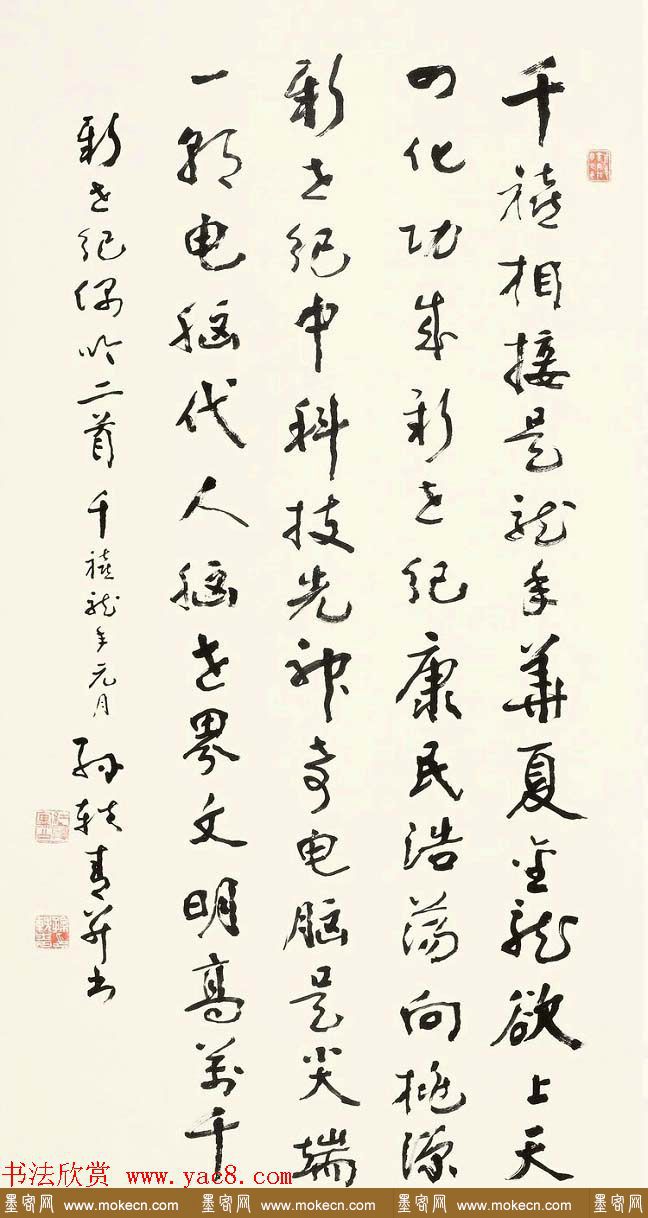 千禧相接是龙年华夏金龙欲上天
四化功成新世纪康民浩荡向桃源
新世纪中科技先神奇电脑是尖端
一朝电脑代人脑世界文明高万千
新世纪偶吟二首 千禧龙年元月 孙轶青并书
书法欣赏 www.yac8.com
墨客网 www.mokecn.com 墨客网 www.mokecn.com 墨客网 www.mokecn.com 墨客网